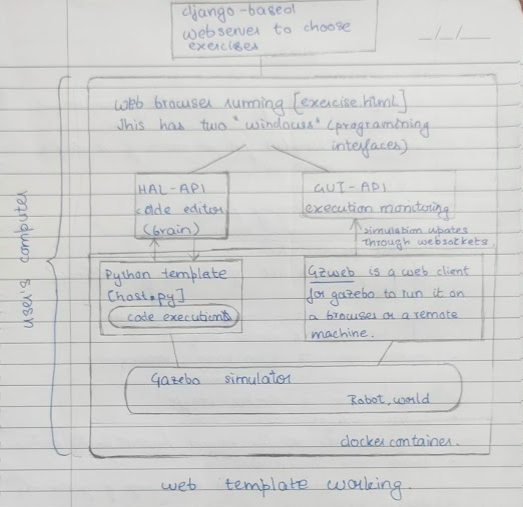 django-based
webserver to choose
exercises
__/__/__
web browser running [exercise.html]
This has two "windows" (programming
interfaces)
user's computer
HAL-API
code editor
(brain)
GUI-API
execution monitoring
simulation updates
through websockets.
Python template
[host.py]
code execution
Gzweb is a web client
for gazebo to run it on
a browser or a remote
machine.
Gazebo simulator
Robot, world
docker container.
web template working.